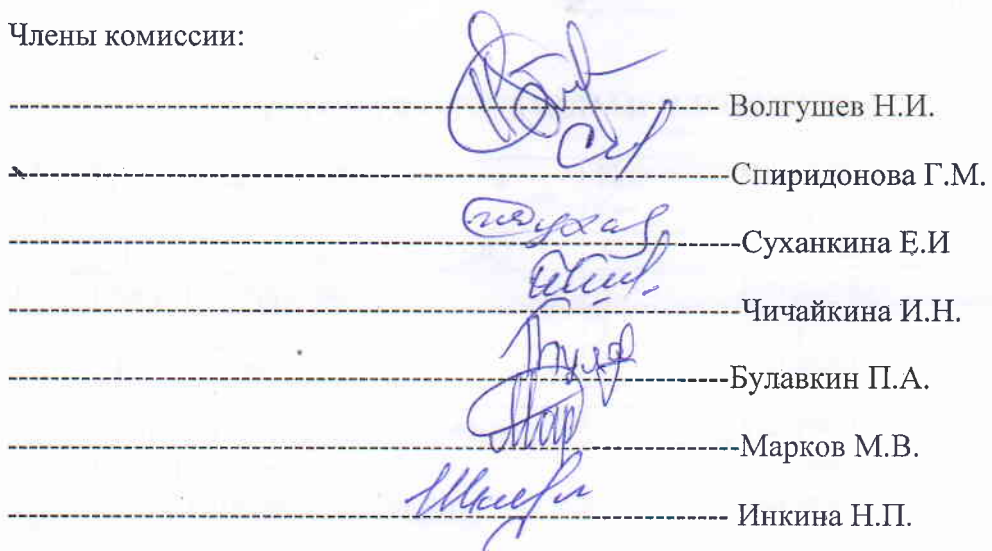 Члены комиссии:
Волгушев Н.И.
Спиридонова Г.М.
Суханкина Е.И
Чичайкина И.Н.
Булавкин П.А.
Марков М.В.
Инкина Н.П.